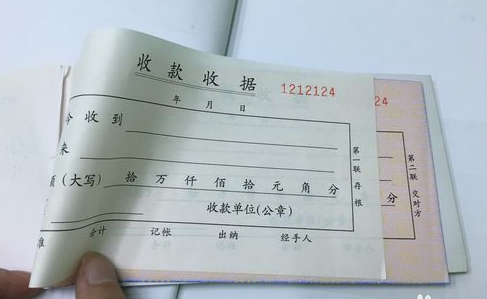 收款收据
1212124
24
年 月 日
今收到
来
额(大写) 拾 万 仟 佰 拾 元 角 分
收款单位(公章)
会计 记帐 出纳 经手人
第一联 存根
第二联 交对方
分